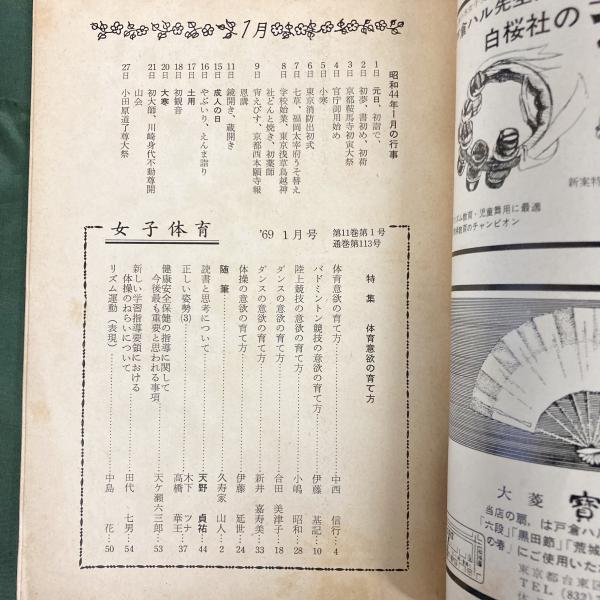 1月
昭和44年1月の行事
1日 元旦、初詣で、
2日 初夢、書初め、初荷
3日 京都鞍馬寺初寅大祭
4日 官庁御用始め
5日 小寒
6日 東京消防出初式
7日 七草、福岡太宰府うそ替え
8日 学校始業、東京浅草鳥越神
社どんと焼き、初薬師
9日 宵えびす、京都西本願寺報
恩講
11日 鏡開き、蔵開き
15日 成人の日
16日 やぶいり、えんま詣り
17日 土用
18日 初観音
20日 大寒
21日 初大師、川崎身代不動尊開
山会
27日 小田原道了尊大祭
女子体育
'69 1月号
第11巻第1号
通巻第113号
特集 体育意欲の育て方
体育意欲の育て方 中西 信行 4
バドミントン競技の意欲の育て方 伊藤 基記 10
陸上競技の意欲の育て方 小嶋 昭和 28
ダンスの意欲の育て方 合田 美津子 18
ダンスの意欲の育て方 新井 嘉寿美 33
体操の意欲の育て方 伊藤 延世 24
随筆 久寿家 山人 2
読書と思考について 天野 貞祐 44
正しい姿勢(3) 木下 ツナ
高橋 華王 37
健康安全保健の指導に関して
今後最も重要と思われる事項 天ケ瀬六三郎 53
新しい学習指導要領における
体操のねらいについて 田代 七男 54
リズム運動(表現) 中島 花 50
倉ハル先生
白桜社の
新案特
ズム教育・児童舞用に最適
教育のチャンピオン
大菱
寶
当店の扇は戸倉ハル
「六段」「黒田節」「荒城
の春」にご使用いた
東京都台東区
TEL (832)